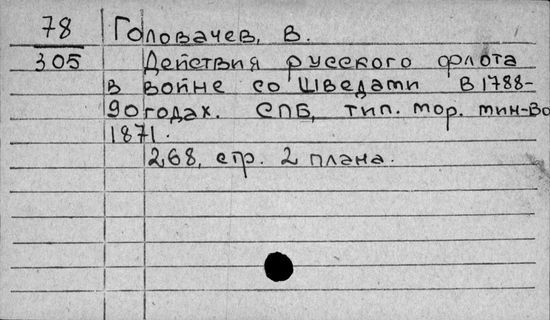 78 Головачев, В.
305 Действия русского флота
в войне со Шведами в 1788-
90 годах. СПБ, тип. мор. мин-во
1871.
268, стр. 2 плана.